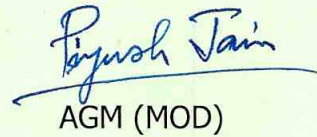 Piyush Jain
AGM (MOD)